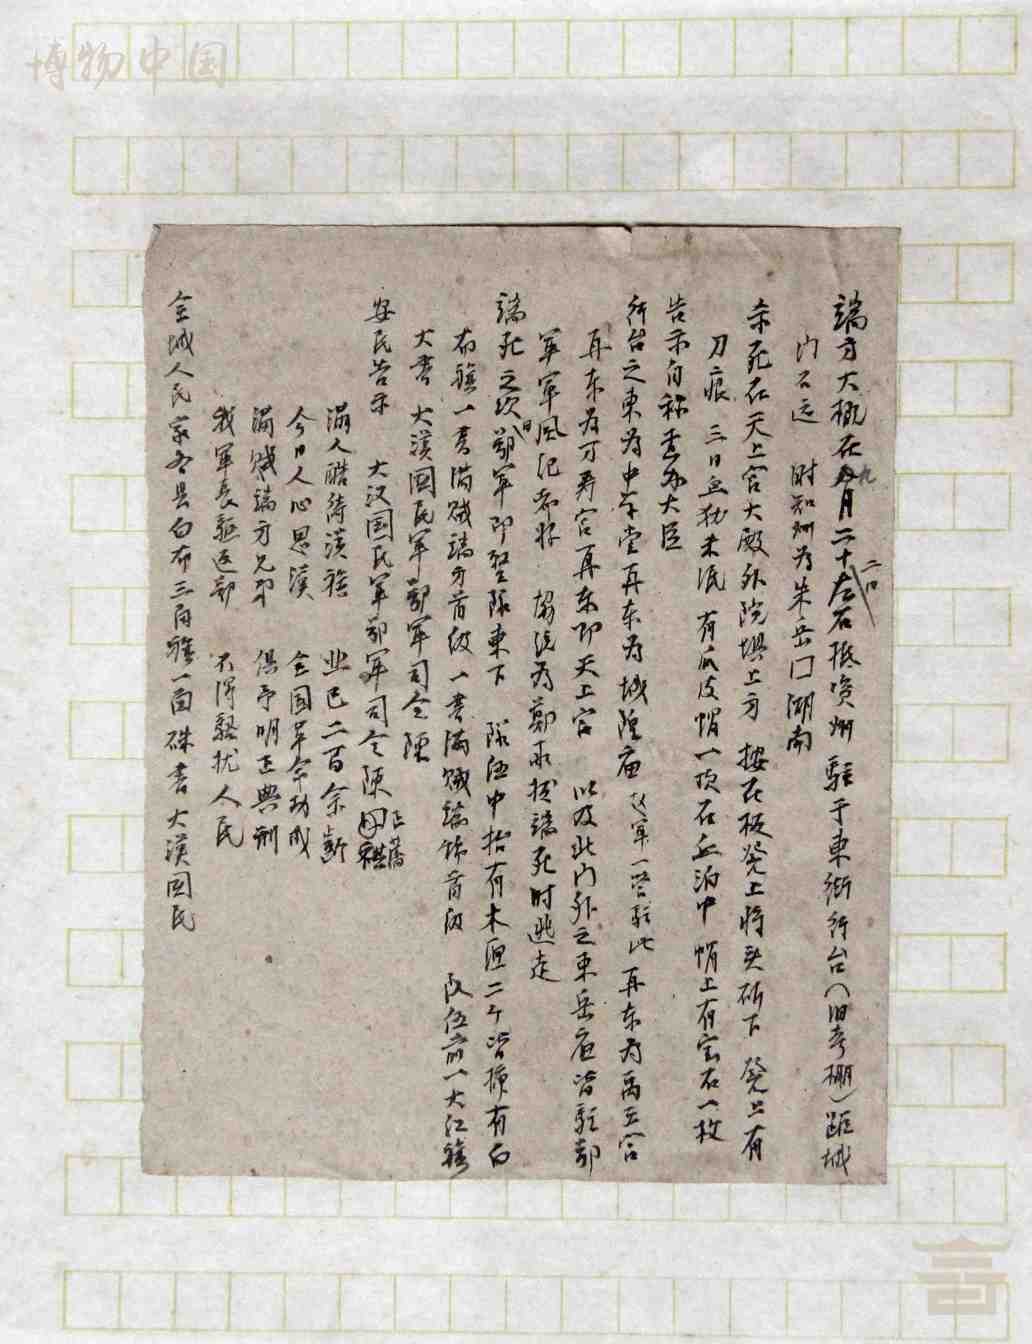 博物中国
端方大概在九月二十二日左右抵资州 驻于東街行台(旧考棚)距城
门不远 时知州为朱岳门湖南
余死在天上宫大殿外院坝上方 按在板凳上将头斫下 凳上有
刀痕 三日血犹未泯 有瓜皮帽一顶在血泊中 帽上有宝石一枚
告示自称查办大臣
行台之東为中学堂再东为城隍庙 这軍一营驻此 再东为禹王宫
再东为万寿宫再东即天上宫 以及北门外之東岳庙皆駐鄂
軍軍風纪 協统为鄭 端死时逃走
端死之次日鄂軍即整隊東下 隊伍中抬有木匣二个皆插有白
布旗一書满贼端方首级一書满贼端锦首级 队伍前一大红旗
大書 大漢國民軍鄂軍司令陳
安民告示 大汉国民軍鄂軍司令陳正藩
满人酷待漢族 业已二百余龄
今日人心思漢 全国革命功成
满贼端方兄弟 俱予明正典刑
我軍長驅返鄂 不得騷扰人民
全城人民家各悬白布三角旗一面硃書大漢国民